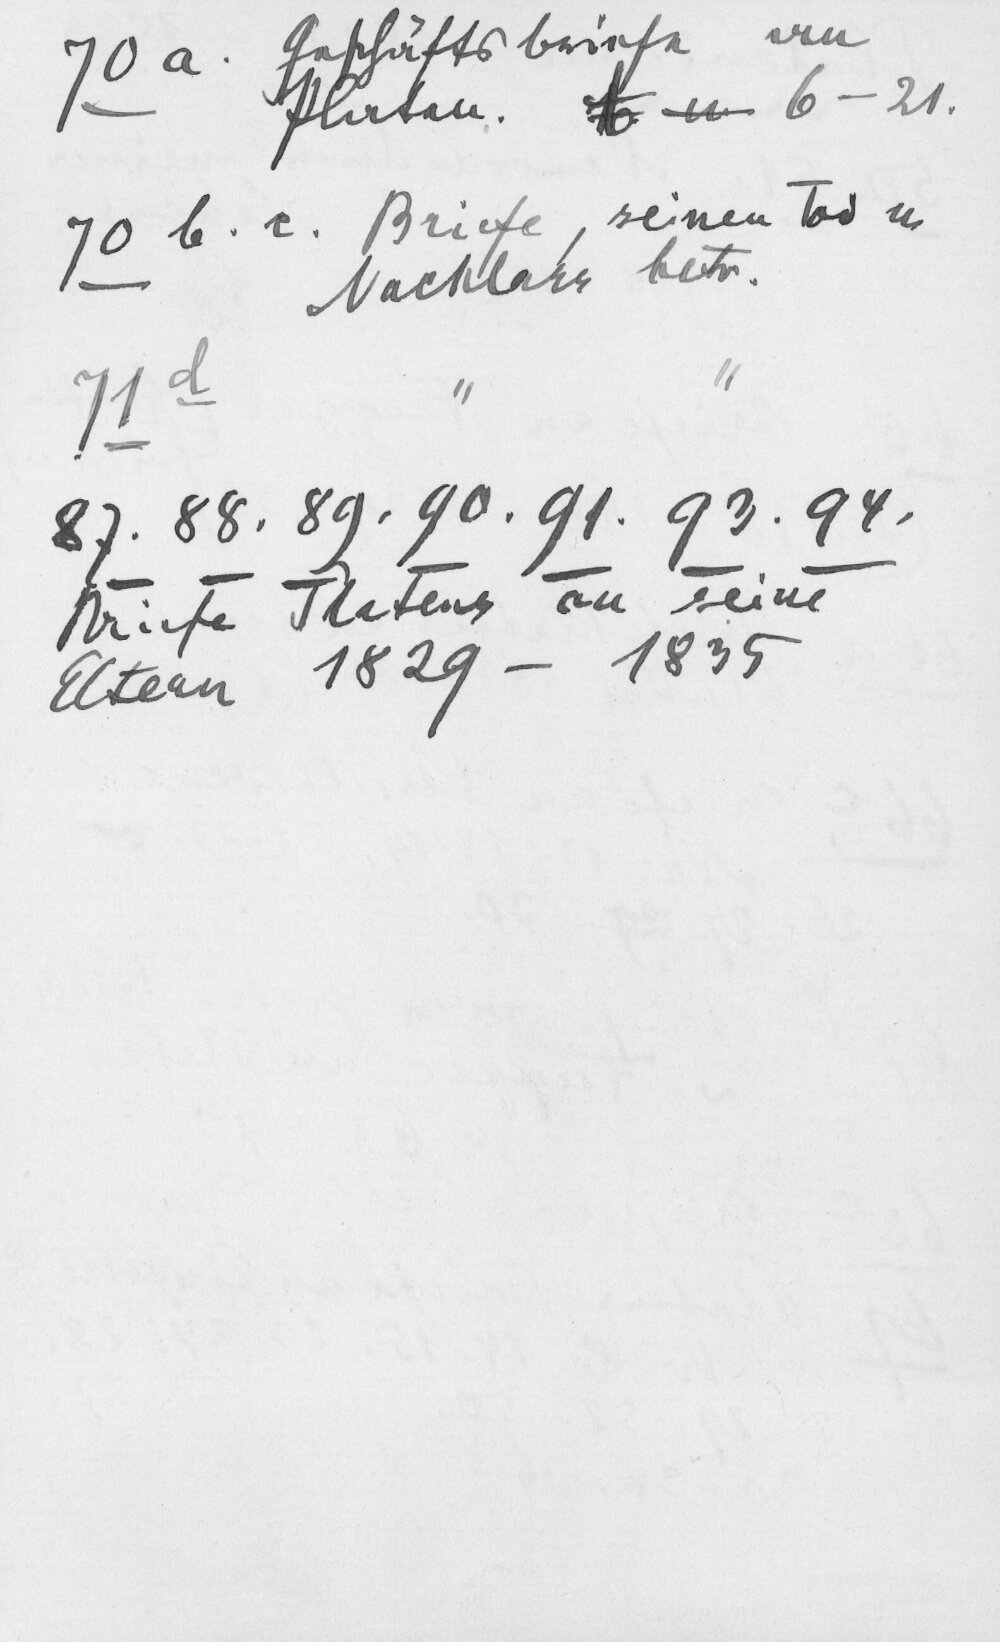 70 a. Geschäftsbriefe an
Platen. 6 – 21.
70 b. c. Briefe, seinen Tod u
Nachlass betr.
71 d " "
87. 88. 89. 90. 91. 93. 94.
Briefe Platens an seine
Eltern 1829 – 1835